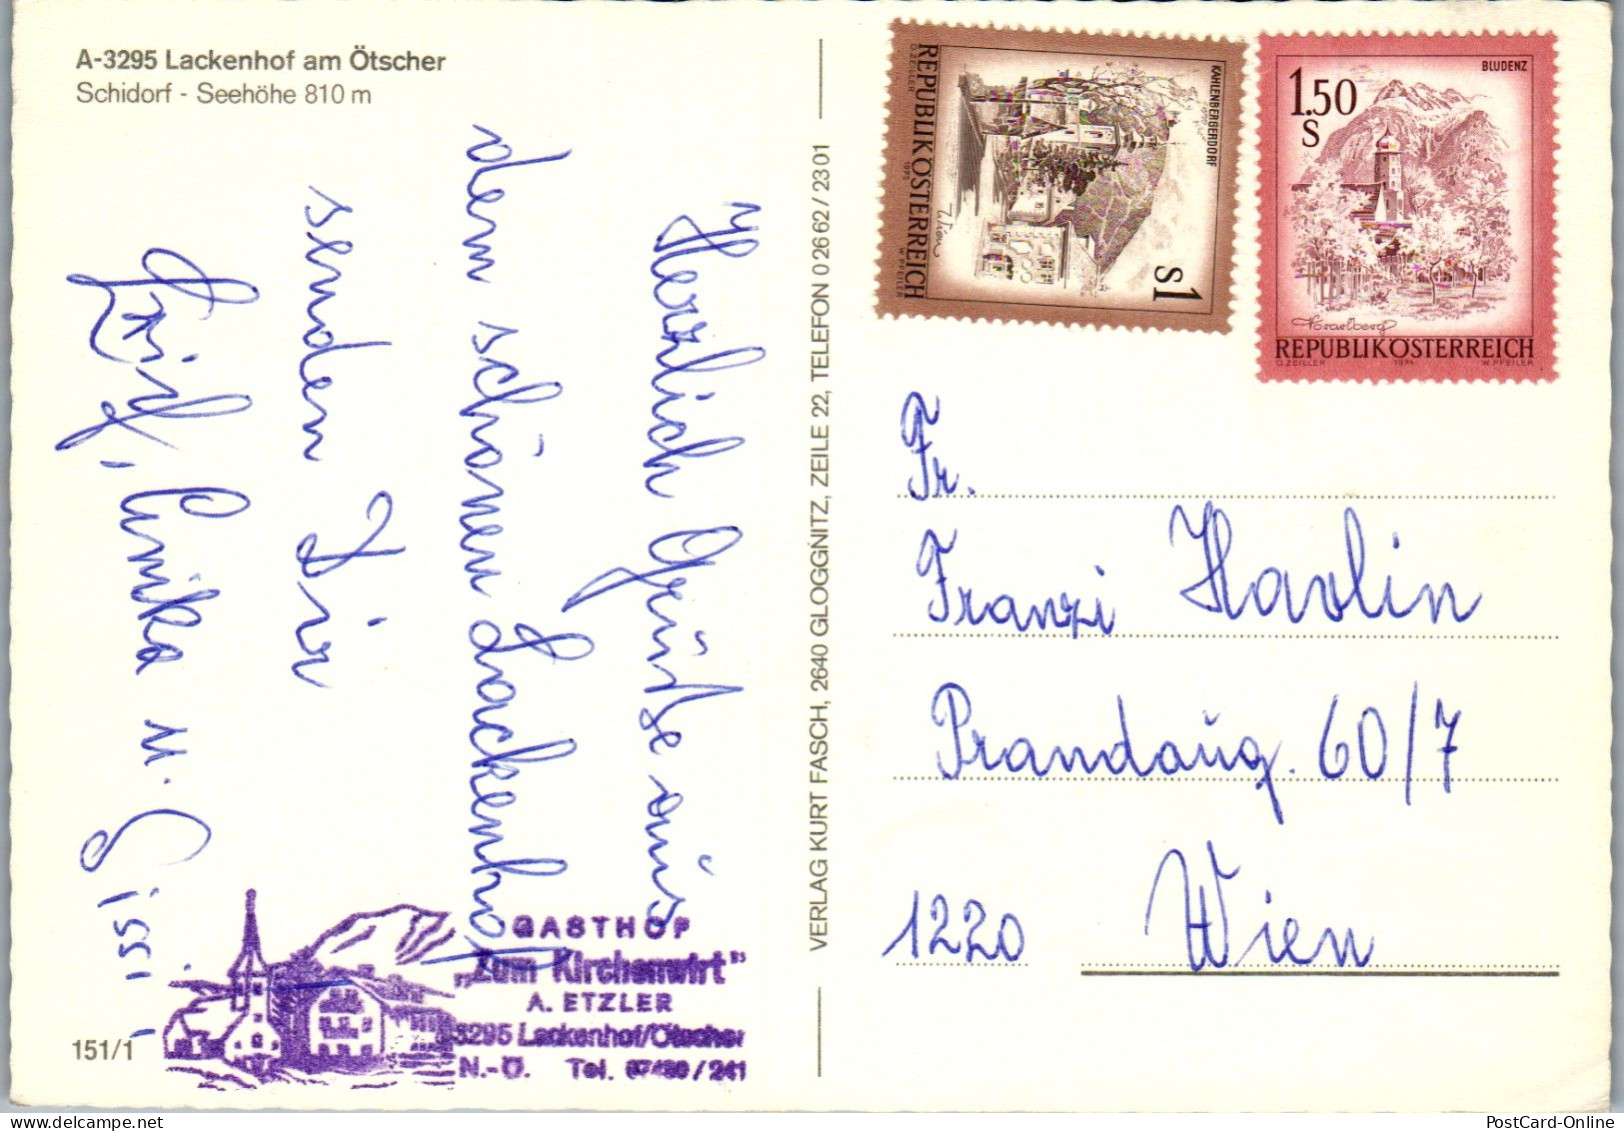 A-3295 Lackenhof am Ötscher
Schidorf - Seehöhe 810 m
Herzlich Grüße aus
dem schönen Lackenhof
senden Dir
Anika u.
Sissi
151/1
GASTHOF
„Zum Kirchenwirt"
A. ETZLER
3295 Lackenhof/Ötscher
N.-Ö. Tel. 07480/241
VERLAG KURT FASCH, 2640 GLOGGNITZ, ZEILE 22, TELEFON 02662/2301
KAHLENBERGERDORF
S1
Wien
REPUBLIK ÖSTERREICH
O. ZEILLER 1975 W. PFEILER
BLUDENZ
1.50
S
Vorarlberg
REPUBLIK ÖSTERREICH
O. ZEILLER 1974 W. PFEILER
Fr.
Franzi Havlin
Prandaug. 60/7
1220 Wien
PostCard-Online